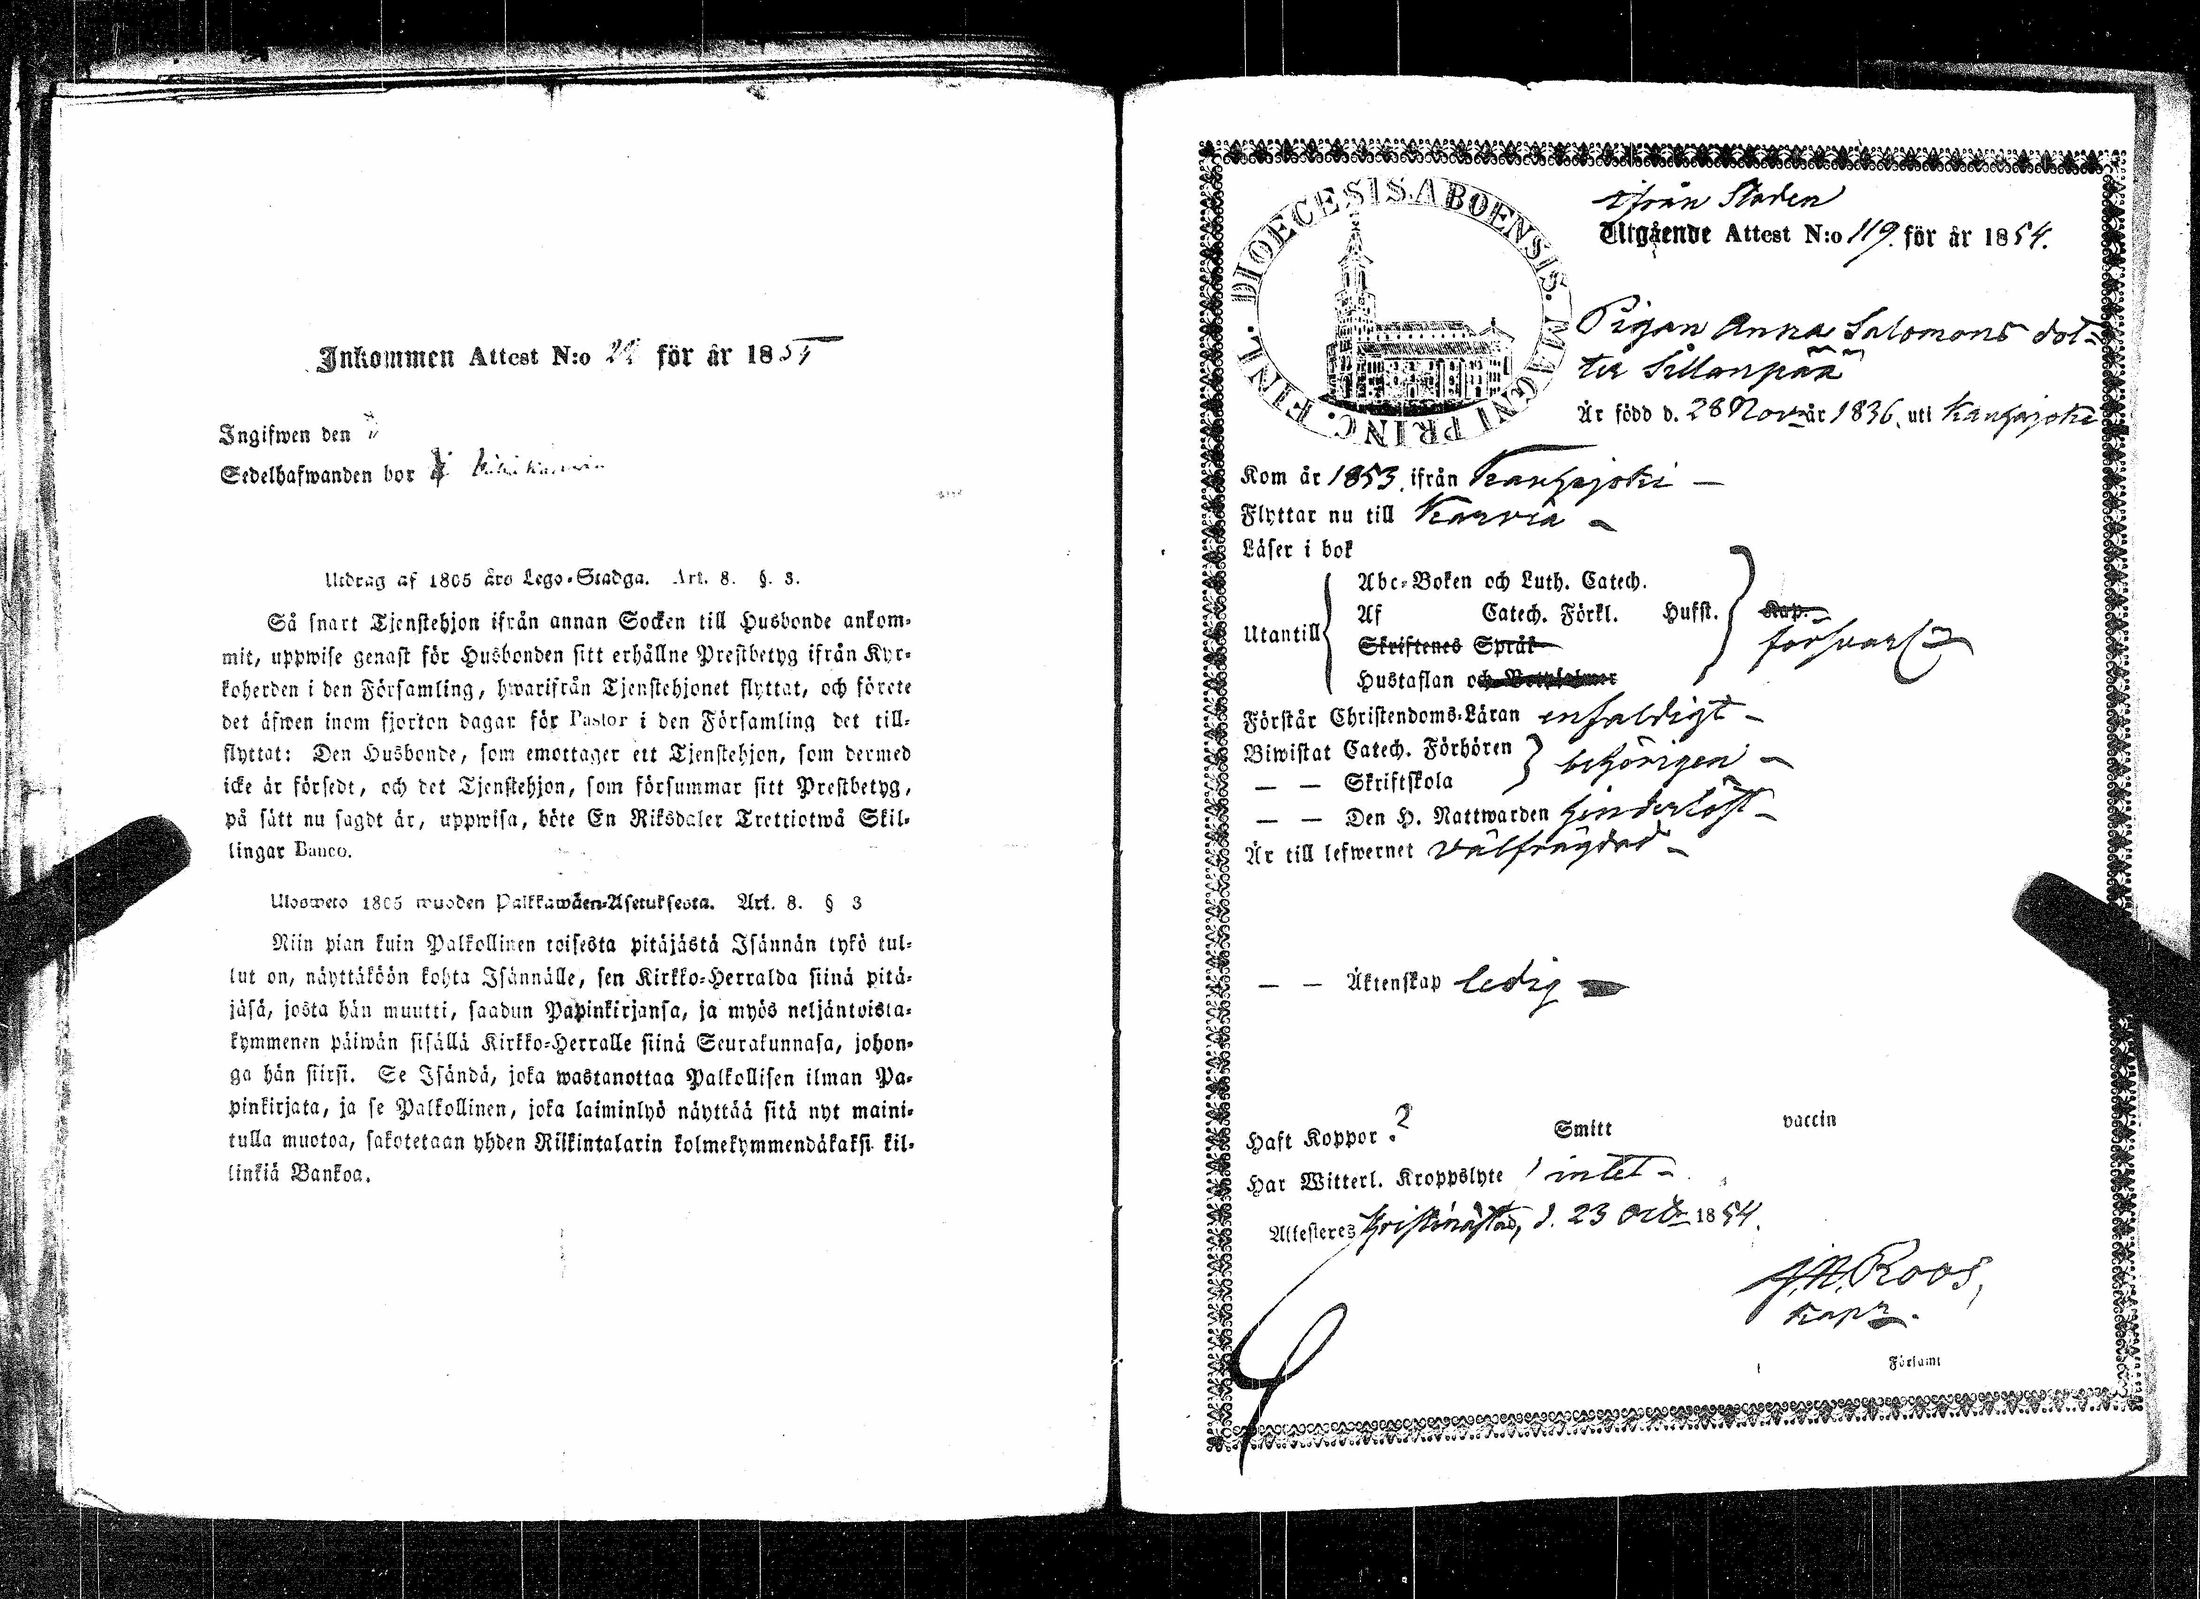 Inkommen Attest N:o 22 för år 1854
Ingifwen den
Sedelhafwanden bor
Utdrag af 1805 års Lego-Stadga. Art. 8. §. 3.
Så snart Tjenstehjon ifrån annan Socken till Husbonde ankom-
mit, uppwise genast för Husbonden sitt erhållne Prestbetyg ifrån Kyr-
koherden i den Församling, hwarifrån Tjenstehjonet flyttat, och förete
det äfwen inom fjorton dagar för Pastor i den Församling det till-
flyttat: Den Husbonde, som emottager ett Tjenstehjon, som dermed
icke är försedt, och det Tjenstehjon, som försummar sitt Prestbetyg,
på sätt nu sagdt är, uppwisa, böte En Riksdaler Trettiotwå Skil-
lingar Banco.
Ulosweto 1805 wuoden Palkkawäen-Asetuksesta. Art. 8. § 3
Niin pian kuin Palkollinen toisesta pitäjästä Isännän tykö tul-
lut on, näyttäköön kohta Isännälle, sen Kirkko-Herralda siinä pitä-
jäsä, josta hän muutti, saadun Papinkirjansa, ja myös neljäntoista-
kymmenen päiwän sisällä Kirkko-Herralle siinä Seurakunnasa, johon-
ga hän siirsi. Se Isändä, joka wastanottaa Palkollisen ilman Pa-
pinkirjata, ja se Palkollinen, joka laiminlyö näyttää sitä nyt maini-
tulla muotoa, sakotetaan yhden Riikintalarin kolmekymmendäkaksi kil-
linkiä Bankoa.
DIOECESIS ABOENSIS. MAGNI PRINC. FINL.
ifrån Staden
Utgående Attest N:o 119. för år 1854.
Pigan Anna Salomons dot-
ter Sillanpää
Är född d. 28 Nov. år 1836, uti Kauhajoki
Kom år 1853, ifrån Kauhajoki —
Flyttar nu till Karvia —
Läser i bok
Abc-Boken och Luth. Catech.
Af Catech. Förkl. Hufst. Kap.
Utantill Skriftenes Språk försvarl.
Hustaflan och Botpsalmer
Förstår Christendoms-Läran enfaldigt —
Biwistat Catech. Förhören behörigen —
— — Skriftskola
— — Den H. Nattwarden hinderlöst —
Är till lefwernet välfrägdad —
— — Äktenskap ledig —
Haft Koppor ? Smitt vaccin
Har Witterl. Kroppslyte intet —
Attesteres Kristinestad, d. 23 Octr 1854.
J. N. Roos,
Kapn.
Församl